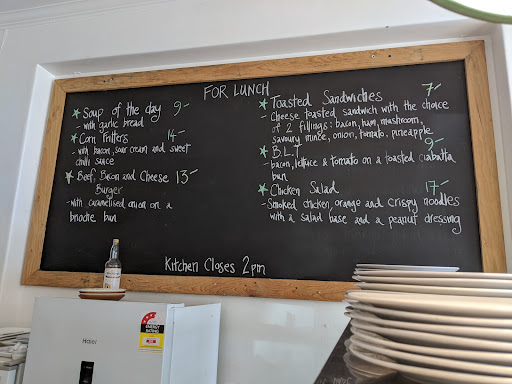 FOR LUNCH
Soup of the day 9-
- with garlic bread
Corn Fritters 14-
- with bacon, sour cream and sweet
chilli sauce
Beef, Bacon and Cheese 13-
Burger
- with caramelised onion on a
brioche bun
Toasted Sandwiches 7-
- Cheese toasted sandwich with the choice
of 2 fillings: bacon, ham, mushroom,
savoury mince, onion, tomato, pineapple
B.L.T 9-
- bacon, lettuce & tomato on a toasted ciabatta
bun
Chicken Salad 17-
- Smoked chicken, orange and crispy noodles
with a salad base and a peanut dressing
Kitchen Closes 2pm
Haier
ENERGY
RATING